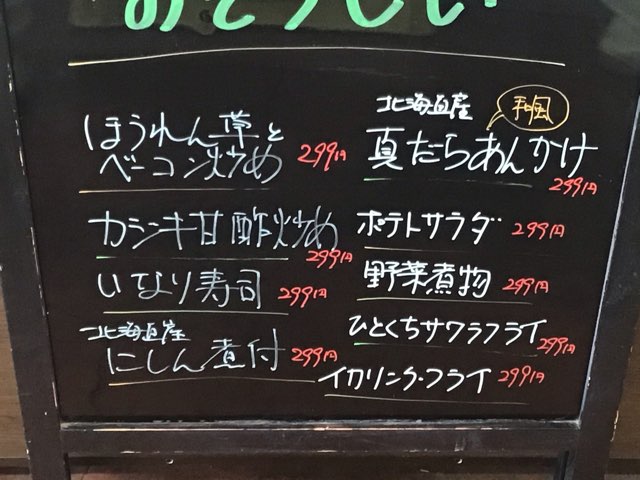 おそうざい
ほうれん草と
ベーコン炒め 299円
カジキ甘酢炒め
299円
いなり寿司 299円
北海道産
にしん煮付 299円
北海道産 和風
真だらあんかけ
299円
ポテトサラダ 299円
野菜煮物 299円
ひとくちサワラフライ
299円
イカリング・フライ 299円